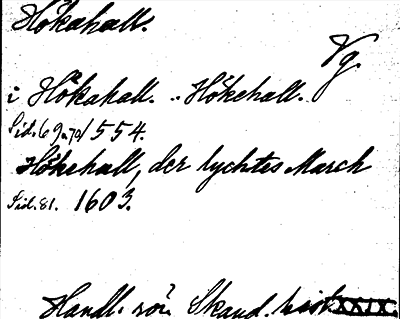 Hökahall.
Vg.
i Hökahall. .. Hökehall.
Sid. 69 a, 70/ 554.
Hökehall, der lychtes March
Sid. 81. 1603.
Handl. rör. Skand. hist. XXIX.